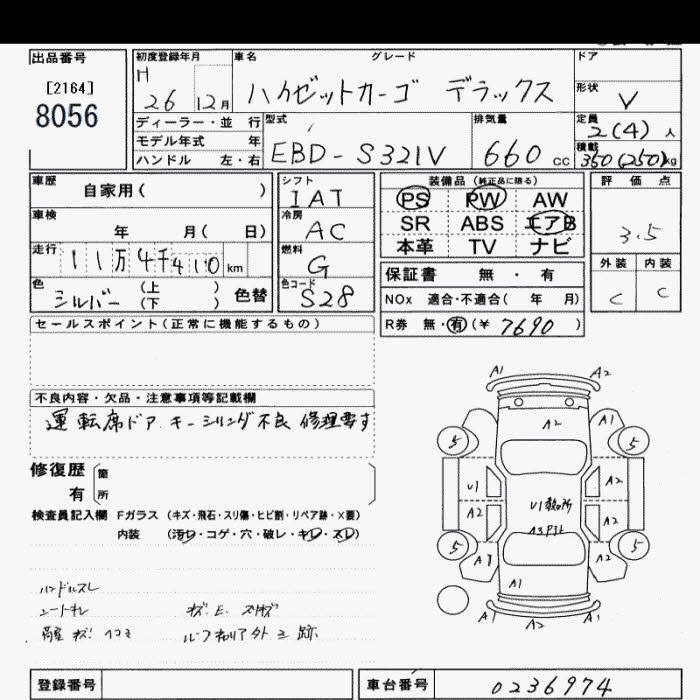 出品番号
[2164]
8056
初度登録年月 車名 グレード ドア
H 26 12月 ハイゼットカーゴ デラックス
形状 V
ディーラー・並 行 型式 排気量 定員 2(4) 人
モデル年式 年 EBD-S321V 660 cc
ハンドル 左・右 積載 350(250)kg
車歴 自家用( ) シフト IAT
装備品 (純正品に限る) 評価点
PS PW AW
車検 年 月( 日) 冷房 AC
SR ABS エアB 3.5
走行 11万4千410 km 燃料 G
本革 TV ナビ
外装 内装
保証書 無・有
C C
色 シルバー (上 ) (下 ) 色替 色コード S28
NOx 適合・不適合( 年 月)
セールスポイント(正常に機能するもの)
R券 無・有(¥ 7690 )
不良内容・欠品・注意事項等記載欄
運転席ドア キーシリンダ不良 修理要す
修復歴 箇
有 所
検査員記入欄 Fガラス (キズ・飛石・スリ傷・ヒビ割・リペア跡・X要)
内装 (汚レ・コゲ・穴・破レ・キレ・スレ)
ハンドルスレ
A1 A2
A2 A1
5 5
U1 A2
A2 A2
5 5
A2
A1
A1 A2 A1
登録番号
車台番号 0236974